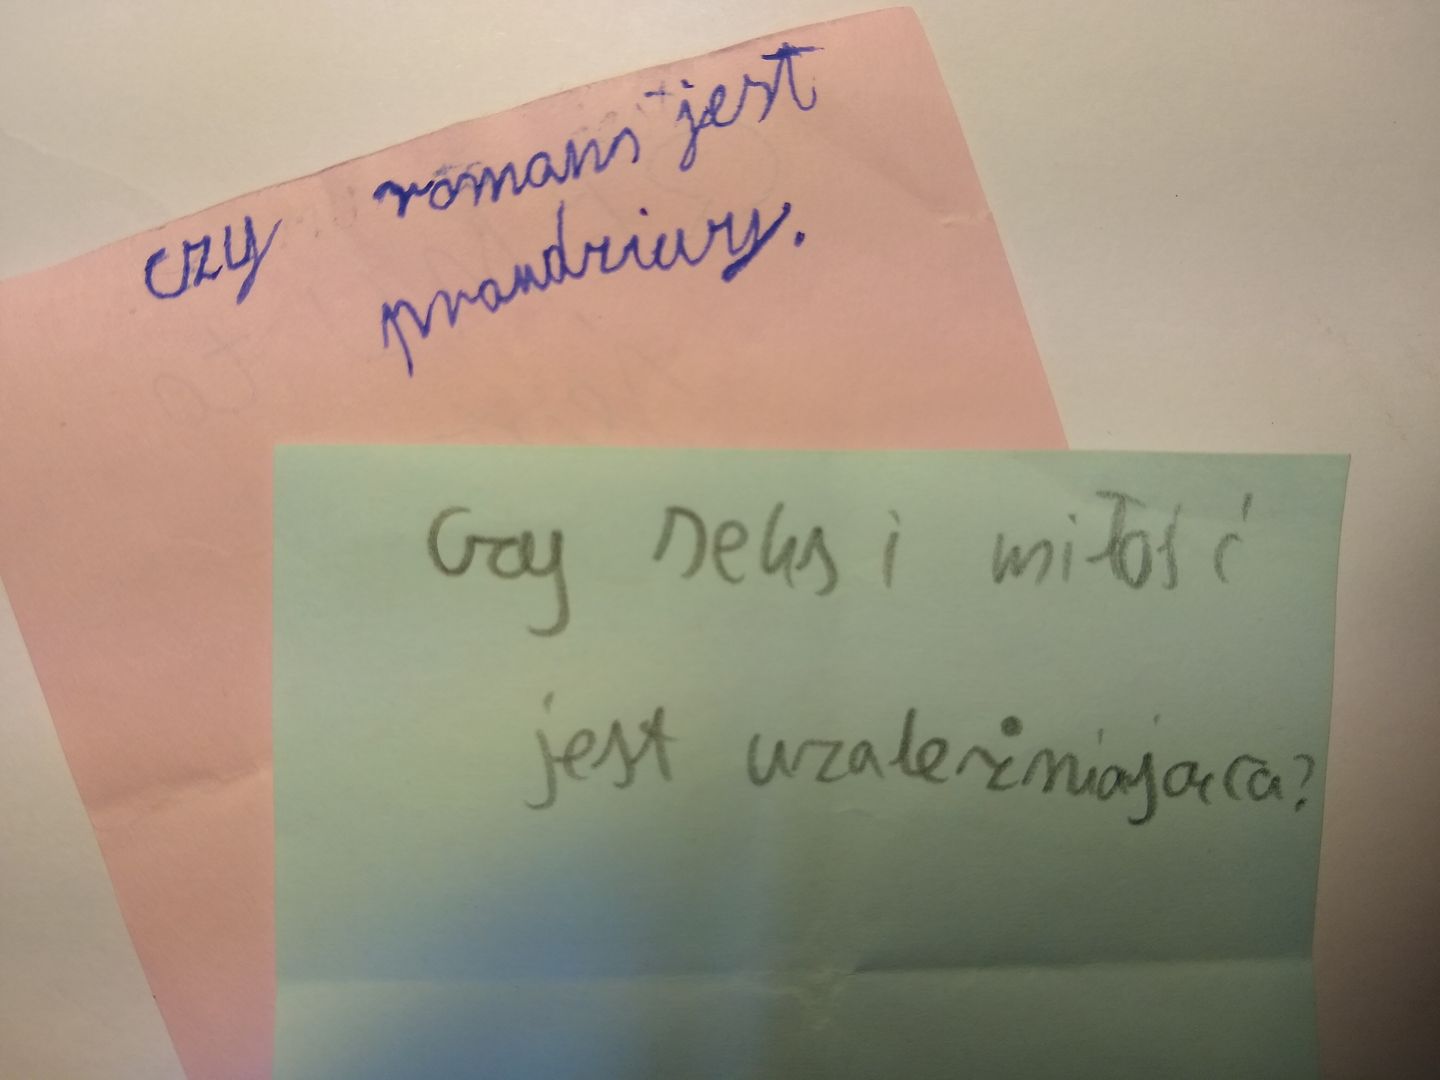 czy romans jest
prawdziwy.
Czy seks i miłość
jest uzależniająca?